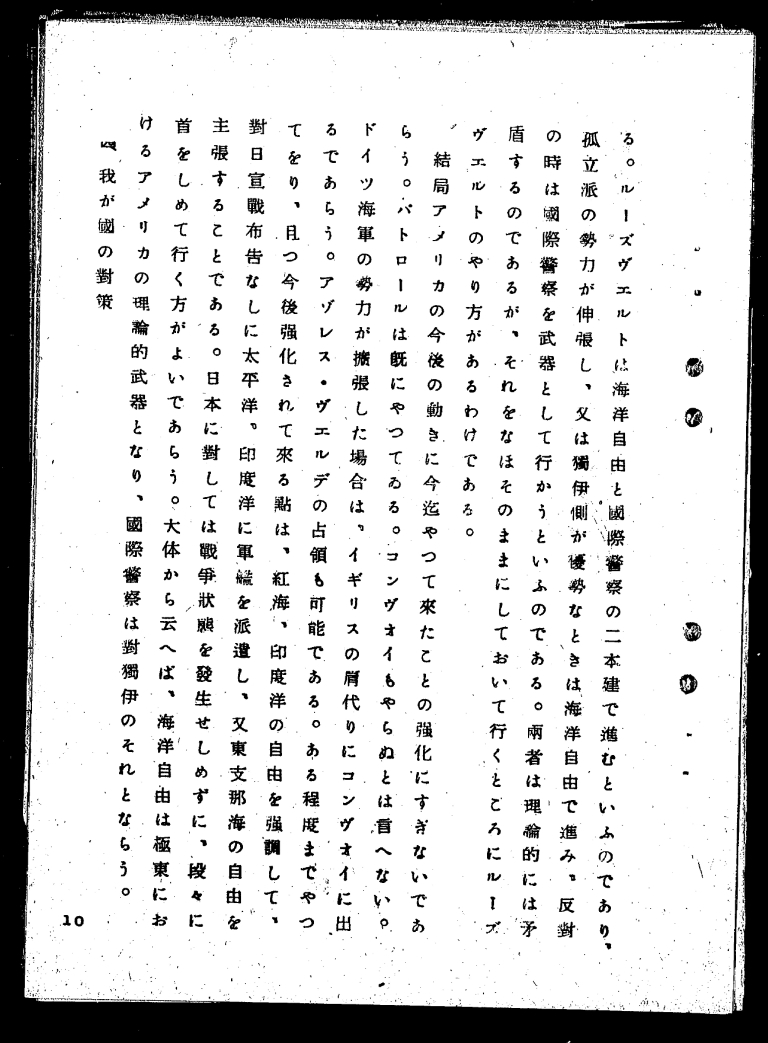 る。ルーズヴエルトは海洋自由と國際警察の二本建で進むといふのであり、
孤立派の勢力が伸張し、又は獨伊側が優勢なときは海洋自由で進み、反對
の時は國際警察を武器として行かうといふのである。兩者は理論的には矛
盾するのであるが、それをなほそのままにしておいて行くところにルーズ
ヴエルトのやり方があるわけである。
結局アメリカの今後の動きに今迄やつて來たことの強化にすぎないであ
らう。パトロールは既にやつてゐる。コンヴオイもやらぬとは言へない。
ドイツ海軍の勢力が擴張した場合は、イギリスの肩代りにコンヴオイに出
るであらう。アゾレス・ヴエルデの占領も可能である。ある程度までやつ
てをり、且つ今後强化されて來る點は、紅海、印度洋の自由を强調して、
對日宣戰布告なしに太平洋、印度洋に軍艦を派遣し、又東支那海の自由を
主張することである。日本に對しては戰爭狀態を發生せしめずに、段々に
首をしめて行く方がよいであらう。大体から云へば、海洋自由は極東にお
けるアメリカの理論的武器となり、國際警察は對獨伊のそれとならう。
四、我が國の對策
10